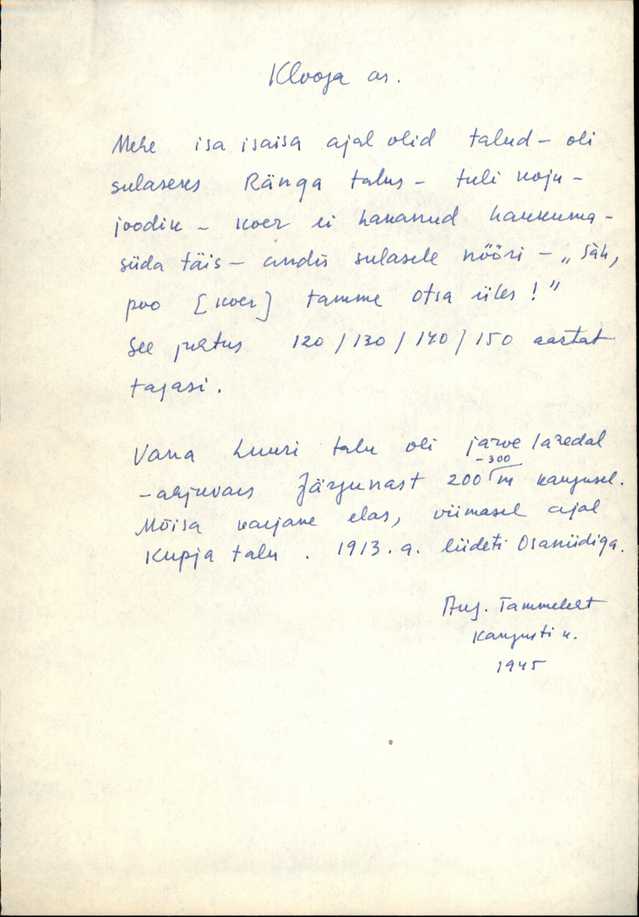 Klooga as.
Mehe isa isaisa ajal olid talud – oli
sulaseks Ränga talus – tuli koju –
joodik – koer ei hakanud haukuma –
süda täis – andis sulasele nööri – „Säh,
poo [koer] tamme otsa üles!"
See juhtus 120/130/140/150 aastat
tagasi.
Vana Luuri talu oli järve lähedal
-300
– Järgunast 200 m kaugusel.
Mõisa karjane elas, viimasel ajal
Kupja talu. 1913. a. liideti Osaniidiga.
Aug. Tammeleht
k.
1945